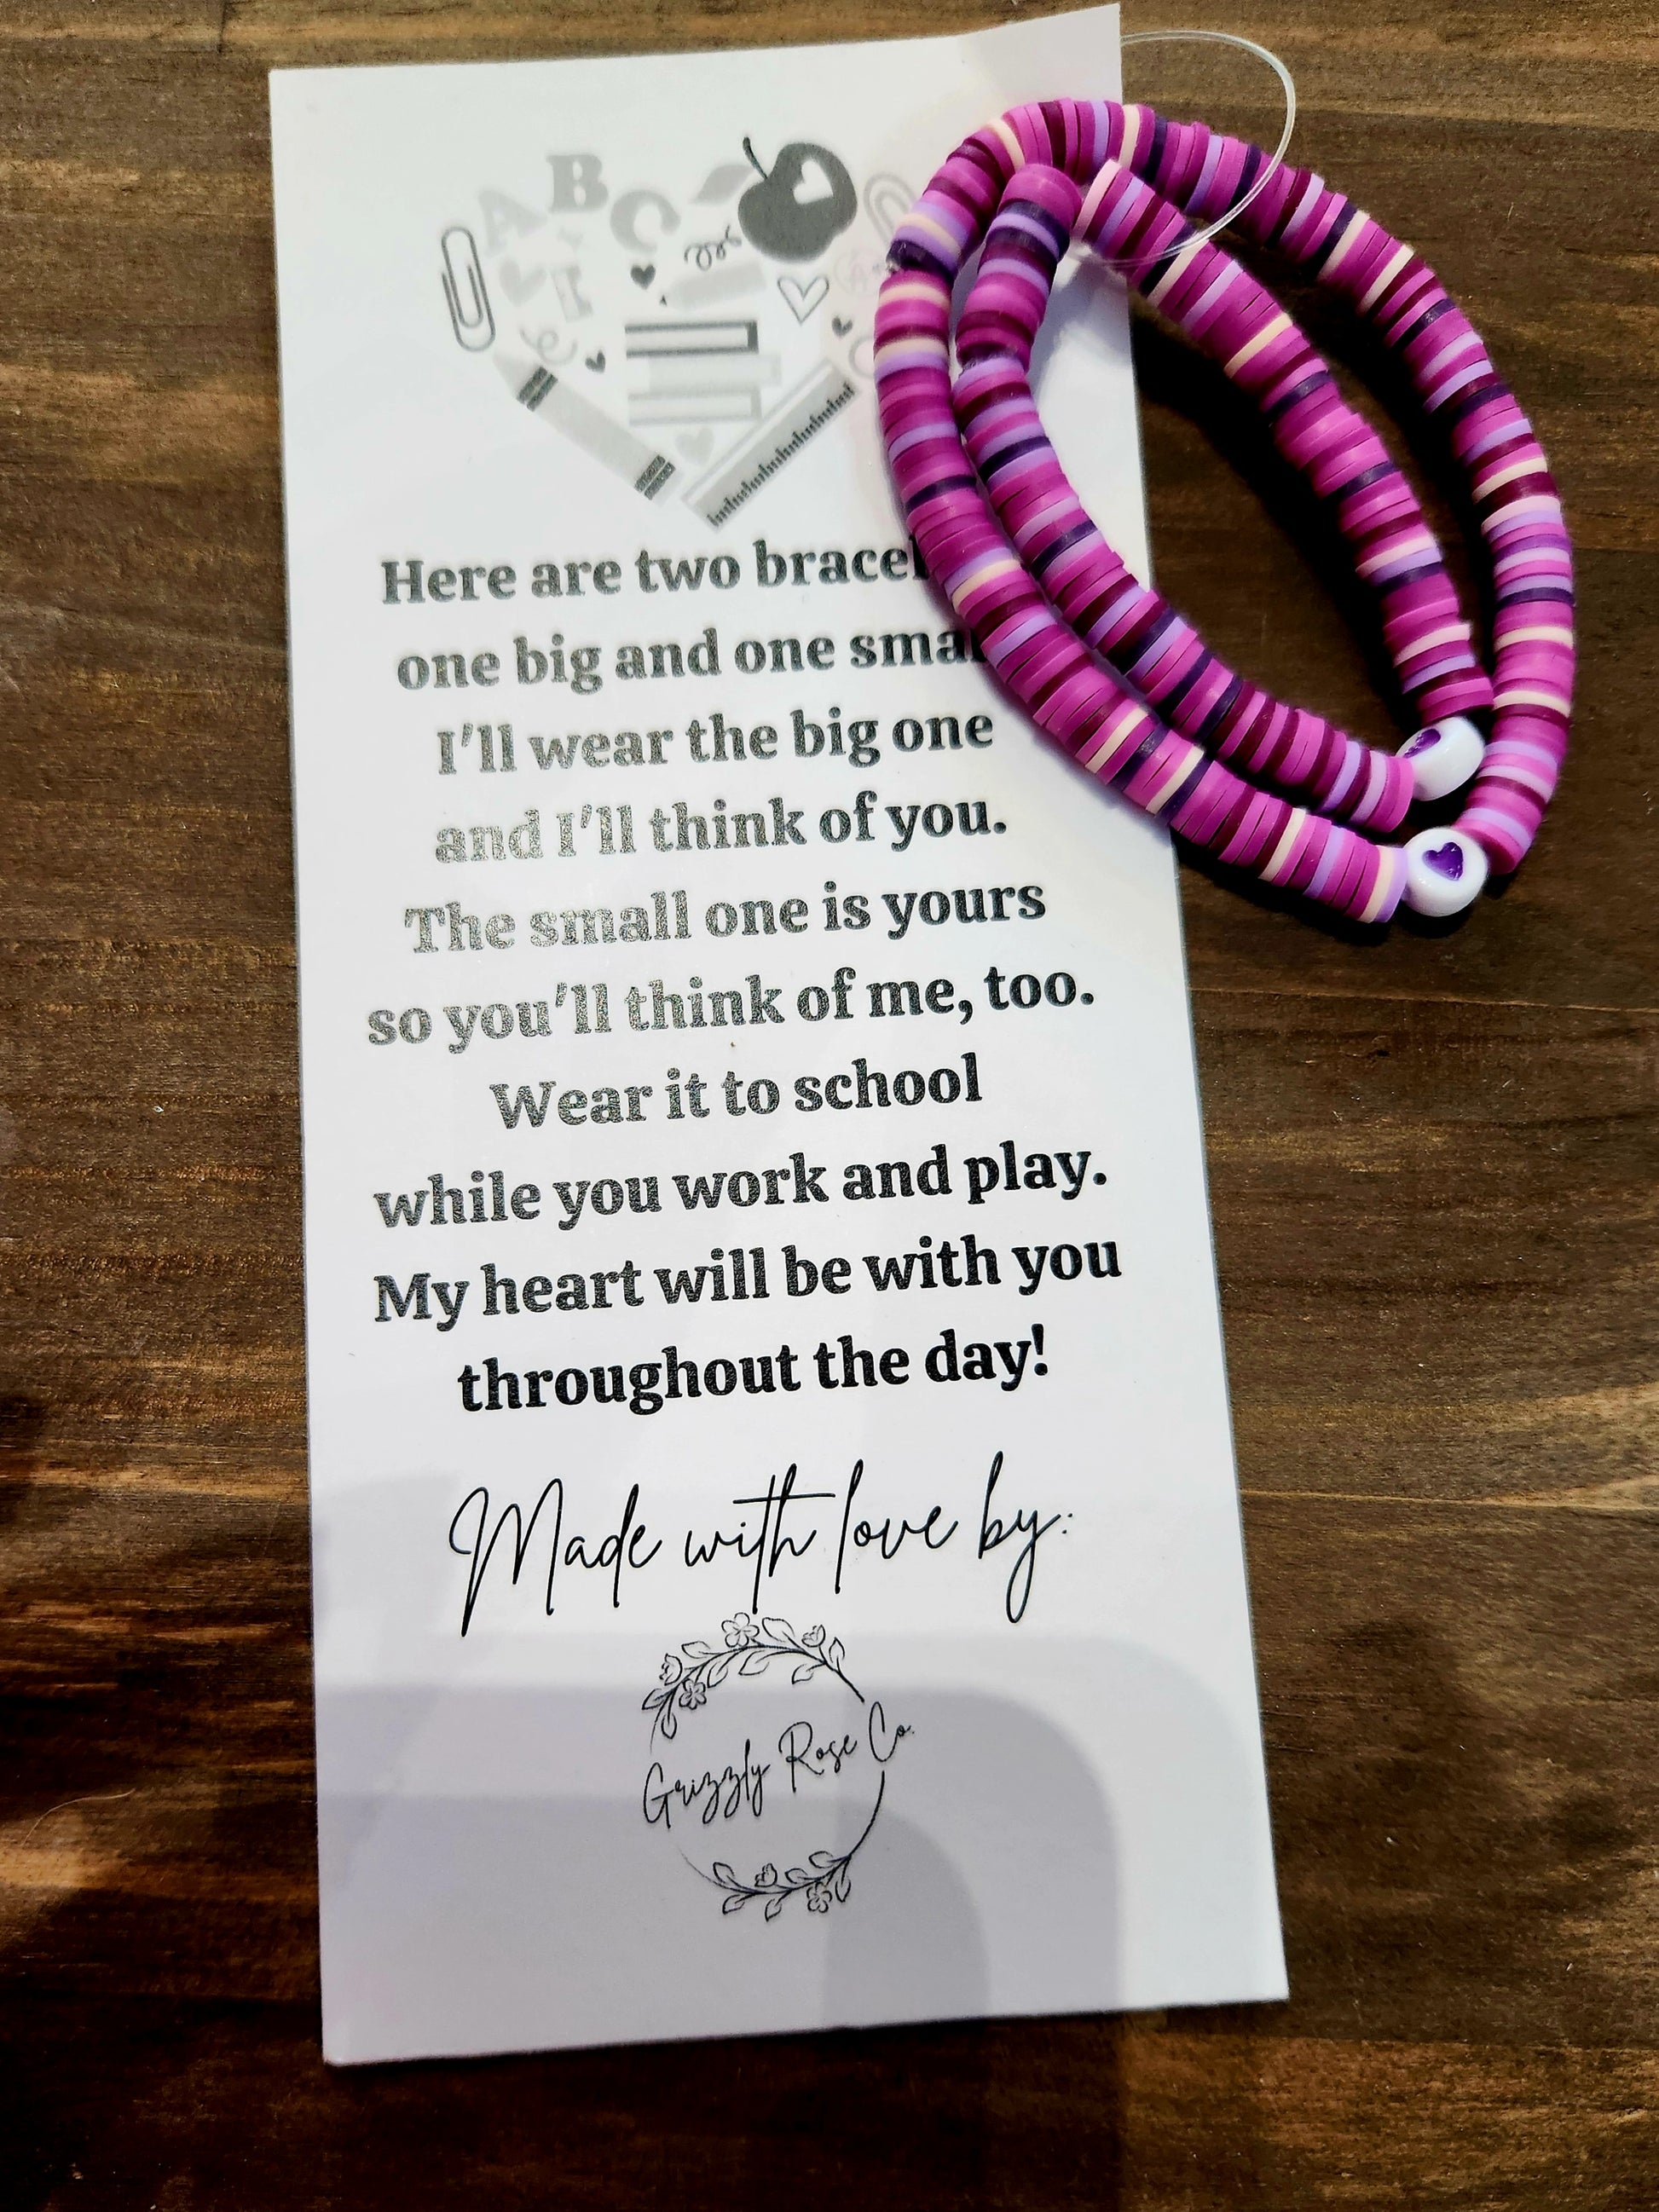 A B C
Here are two bracel
one big and one smal
I'll wear the big one
and I'll think of you.
The small one is yours
so you'll think of me, too.
Wear it to school
while you work and play.
My heart will be with you
throughout the day!
Made with love by:
Grizzly Rose Co.